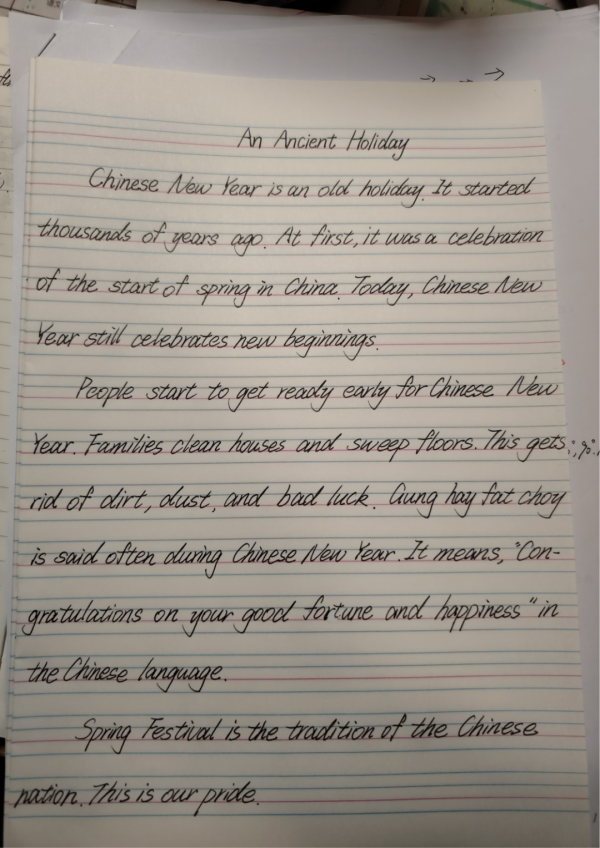 An Ancient Holiday
Chinese New Year is an old holiday. It started
thousands of years ago. At first, it was a celebration
of the start of spring in China. Today, Chinese New
Year still celebrates new beginnings.
People start to get ready early for Chinese New
Year. Families clean houses and sweep floors. This gets
rid of dirt, dust, and bad luck. Gung hay fat choy
is said often during Chinese New Year. It means, "Con-
gratulations on your good fortune and happiness" in
the Chinese language.
Spring Festival is the tradition of the Chinese
nation. This is our pride.